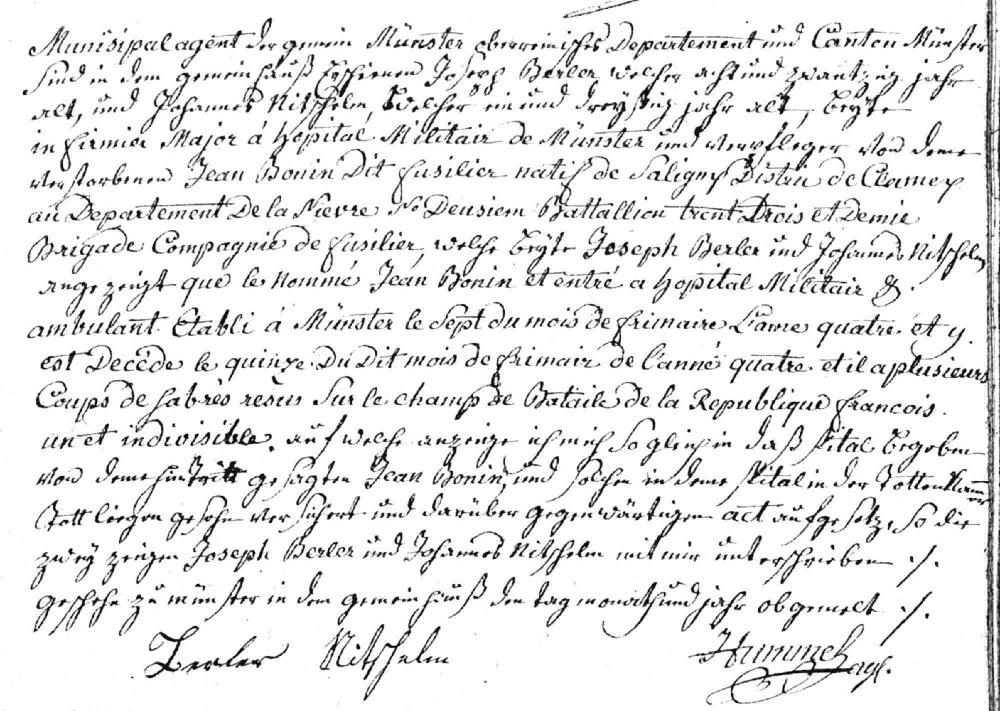 Munisipal agent der gemein Münster oberreinisches Departement und Canton Münster
sind in dem gemein hauß Erschienen Joseph Berler, welcher acht und zwantzig jahr
alt, und Johannes Nitschelm, Welcher ein und dreyßig jahr alt, beyte
in firmier Major á hopital Militair de Münster und verpfleger von deme
verstorbenen Jean Bonin Dit fusilier natif de Saligny Distri de Clamey
au Departement De la Nievre No Deusiem Battallion trent Trois et Demie
Brigade Compagnie de fusilier, welche beyte Joseph Berler und Johannes Nitschelm
angezeigt que le Nommé Jean Bonin et entré a hopital Militair &.
ambulant Etabli á Münster le Sept du mois de frimaire L'ame quatre et y.
est Decéde le quinze Du Dit mois de frimair de l'anné quatre et il a plusieurs
Coups de Sabrès résus Sur le champ de Bataile de la Republique francois.
un et indivisible. auf welche anzeige ich mich so gleich in daß Spital begeben
von deme hintritt gesagten Jean Bonin, und solchen in deme Spital in der Totten Kammer
Tott liegen gesehn versichert und darüber gegenwärtigen act aufgesetz, so die
zwey zeugen Joseph Berler und Johannes Nitschelm mit mir unterschrieben ./.
geschehn zu münster in dem gemein hauß den tag monath und jahr obgemelt ./.
Berler Nitschelm Hummel agt.